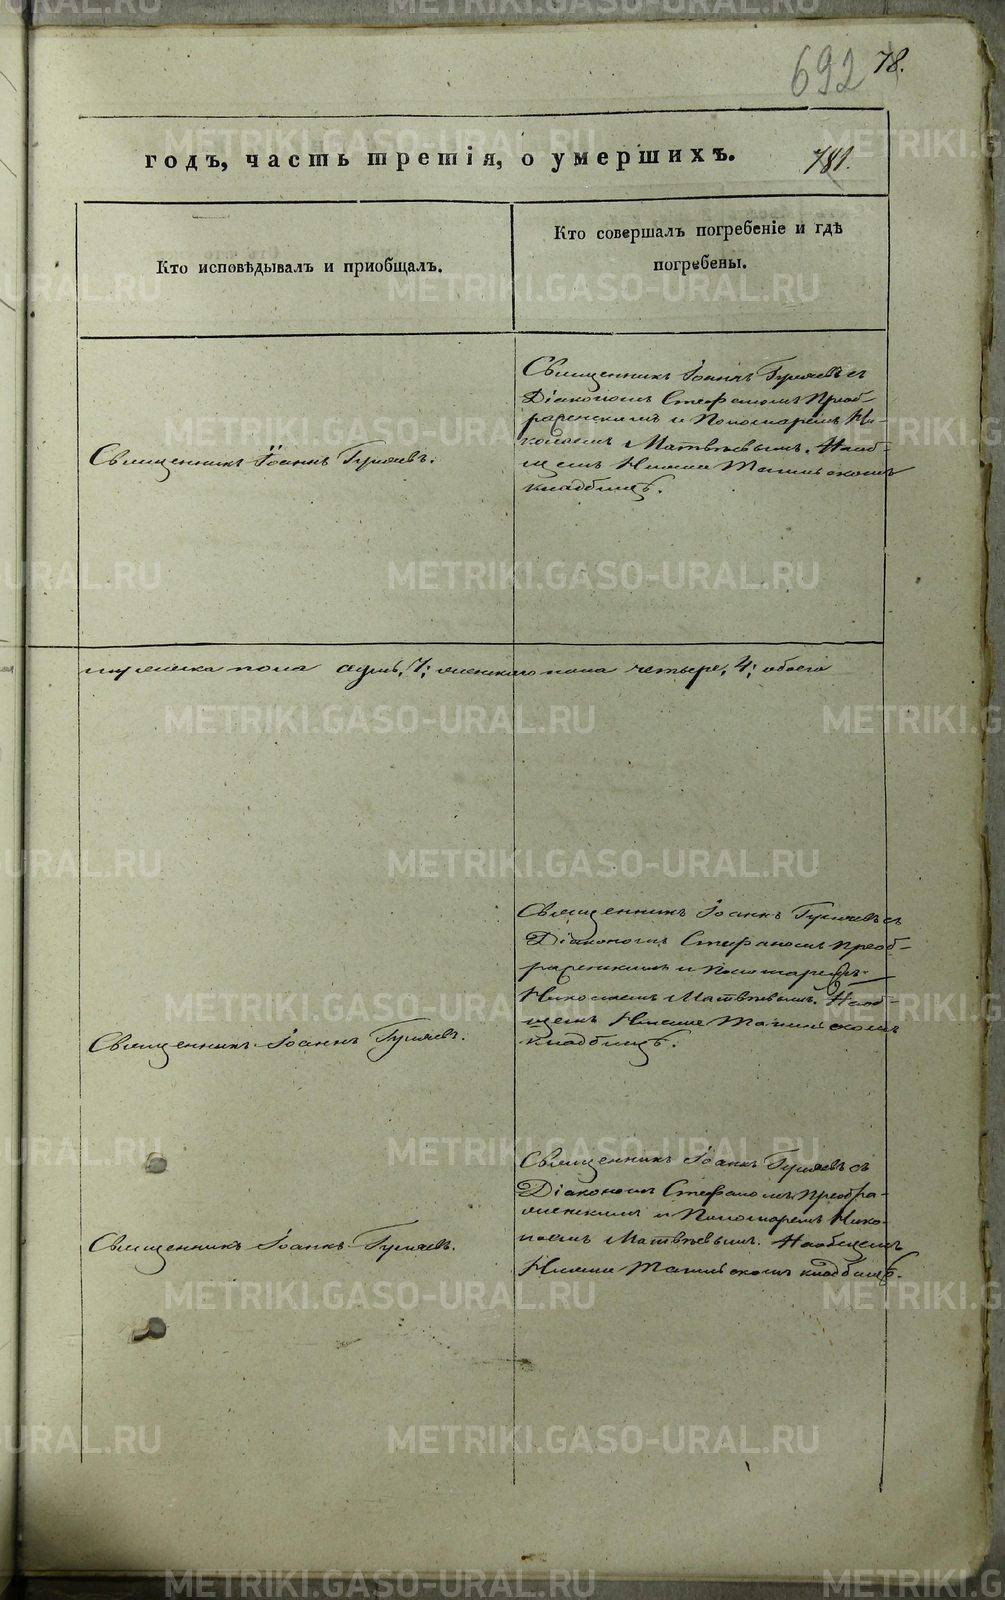 692 78.
годъ, часть третія, о умершихъ. 781.
Кто исповѣдывалъ и приобщалъ.
Кто совершалъ погребеніе и гдѣ
погребены.
Священникъ Іоаннъ Гуляевъ.
Священникъ Іоаннъ Гуляевъ съ
Діакономъ Стефаномъ Преоб-
раженскимъ и Пономаремъ Ни-
колаемъ Матвѣевымъ. На об-
щемъ Нижне Тагильскомъ
кладбищѣ.
мужеска пола одинъ, 1; женскаго пола четыре, 4; обоего
Священникъ Іоаннъ Гуляевъ.
Священникъ Іоаннъ Гуляевъ съ
Діакономъ Стефаномъ Преоб-
раженскимъ и Пономаремъ
Николаемъ Матвѣевымъ. На об-
щемъ Нижне Тагильскомъ
кладбищѣ.
Священникъ Іоаннъ Гуляевъ.
Священникъ Іоаннъ Гуляевъ съ
Діакономъ Стефаномъ Преобра-
женскимъ и Пономаремъ Нико-
лаемъ Матвѣевымъ. На общемъ
Нижне Тагильскомъ кладбищѣ.
METRIKI.GASO-URAL.RU